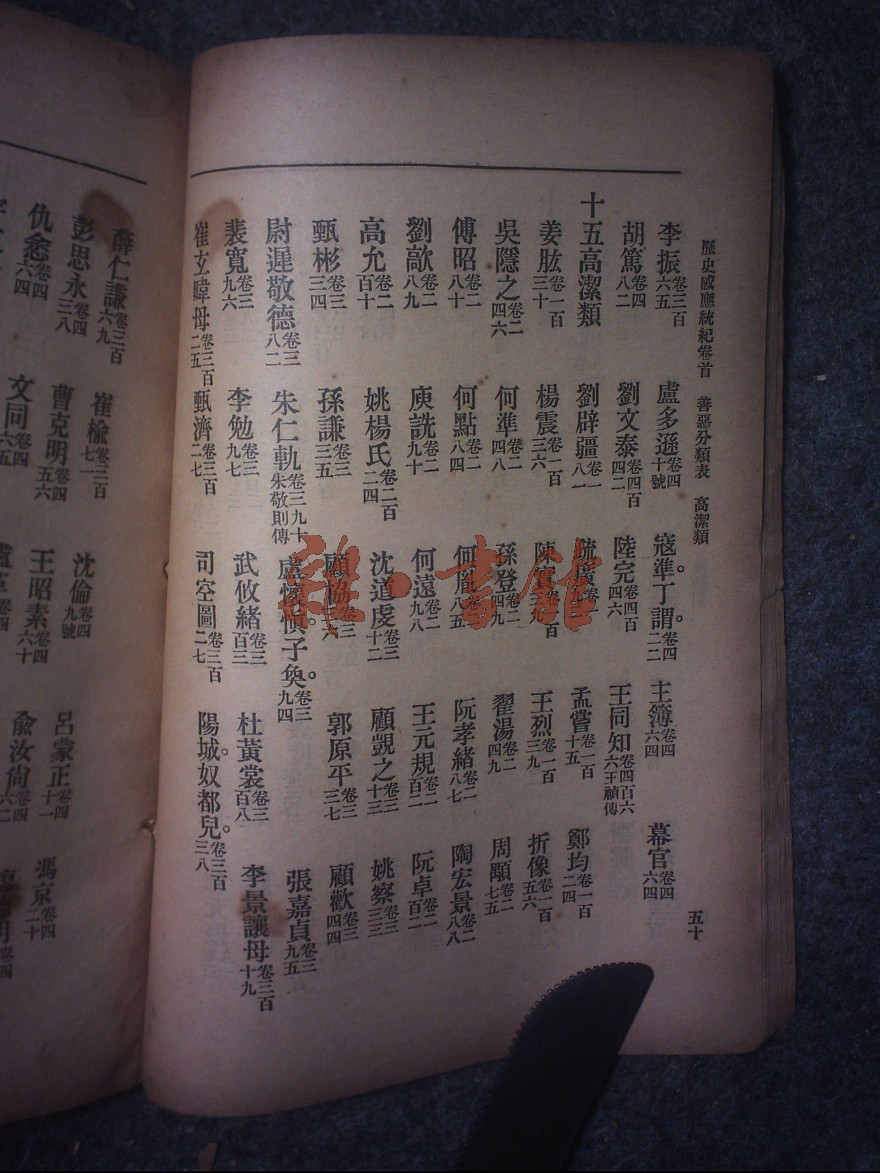 歷史感應統紀卷首 善惡分類表 高潔類 五十
李振卷三百六五 盧多遜卷四十號 寇準丁謂。卷四二二 主簿卷四六四 幕官卷四六四
胡篤卷四八二 劉文泰卷四百四二 陸完卷四百四六 王同知卷四百六六王禎傳
十五高潔類
姜肱卷一百三十 劉辟疆卷一八一 疏廣 孟嘗卷一百十五 鄭均卷一百二四
吳隱之卷二四六 楊震卷一百三六 陳寔 王烈卷一百三九 折像卷一百五六
傅昭卷二八十 何準卷二四八 孫登卷二四九 翟湯卷二四九 周顒卷二七五
劉歊卷二八九 何點卷二八四 何胤卷二八五 阮孝緒卷二八七 陶宏景卷二八八
高允卷二百十 庾詵卷二九十 何遠卷二九八 王元規卷二百二 阮卓卷二百二
甄彬卷三三四 姚楊氏卷二百二四 沈道虔卷三十二 顧覬之卷三十三 姚察卷三三三
尉遲敬德卷三八二 孫謙卷三三五 顧協卷三 郭原平卷三三七 顧歡卷三四四
裴寬卷三九六 朱仁軌卷三九十朱敬則傳 盧懷愼。子奐。卷三九四 張嘉貞卷三九五
崔玄暐母卷三百二五 李勉卷三九七 武攸緒卷三百三 杜黃裳卷三百八 李景讓母卷三百十九
甄濟卷三百二七 司空圖卷三百二七 陽城。奴都兒。卷三百三八
薛仁謙卷三百六九 崔楡卷三百七一 沈倫卷四九號 呂蒙正卷四十一 馮京卷四二十
彭思永卷四三八 曹克明卷四五六 王昭素卷四六十 俞汝尙卷四六二
仇悆卷四六四 文同卷四六五
雜·書館